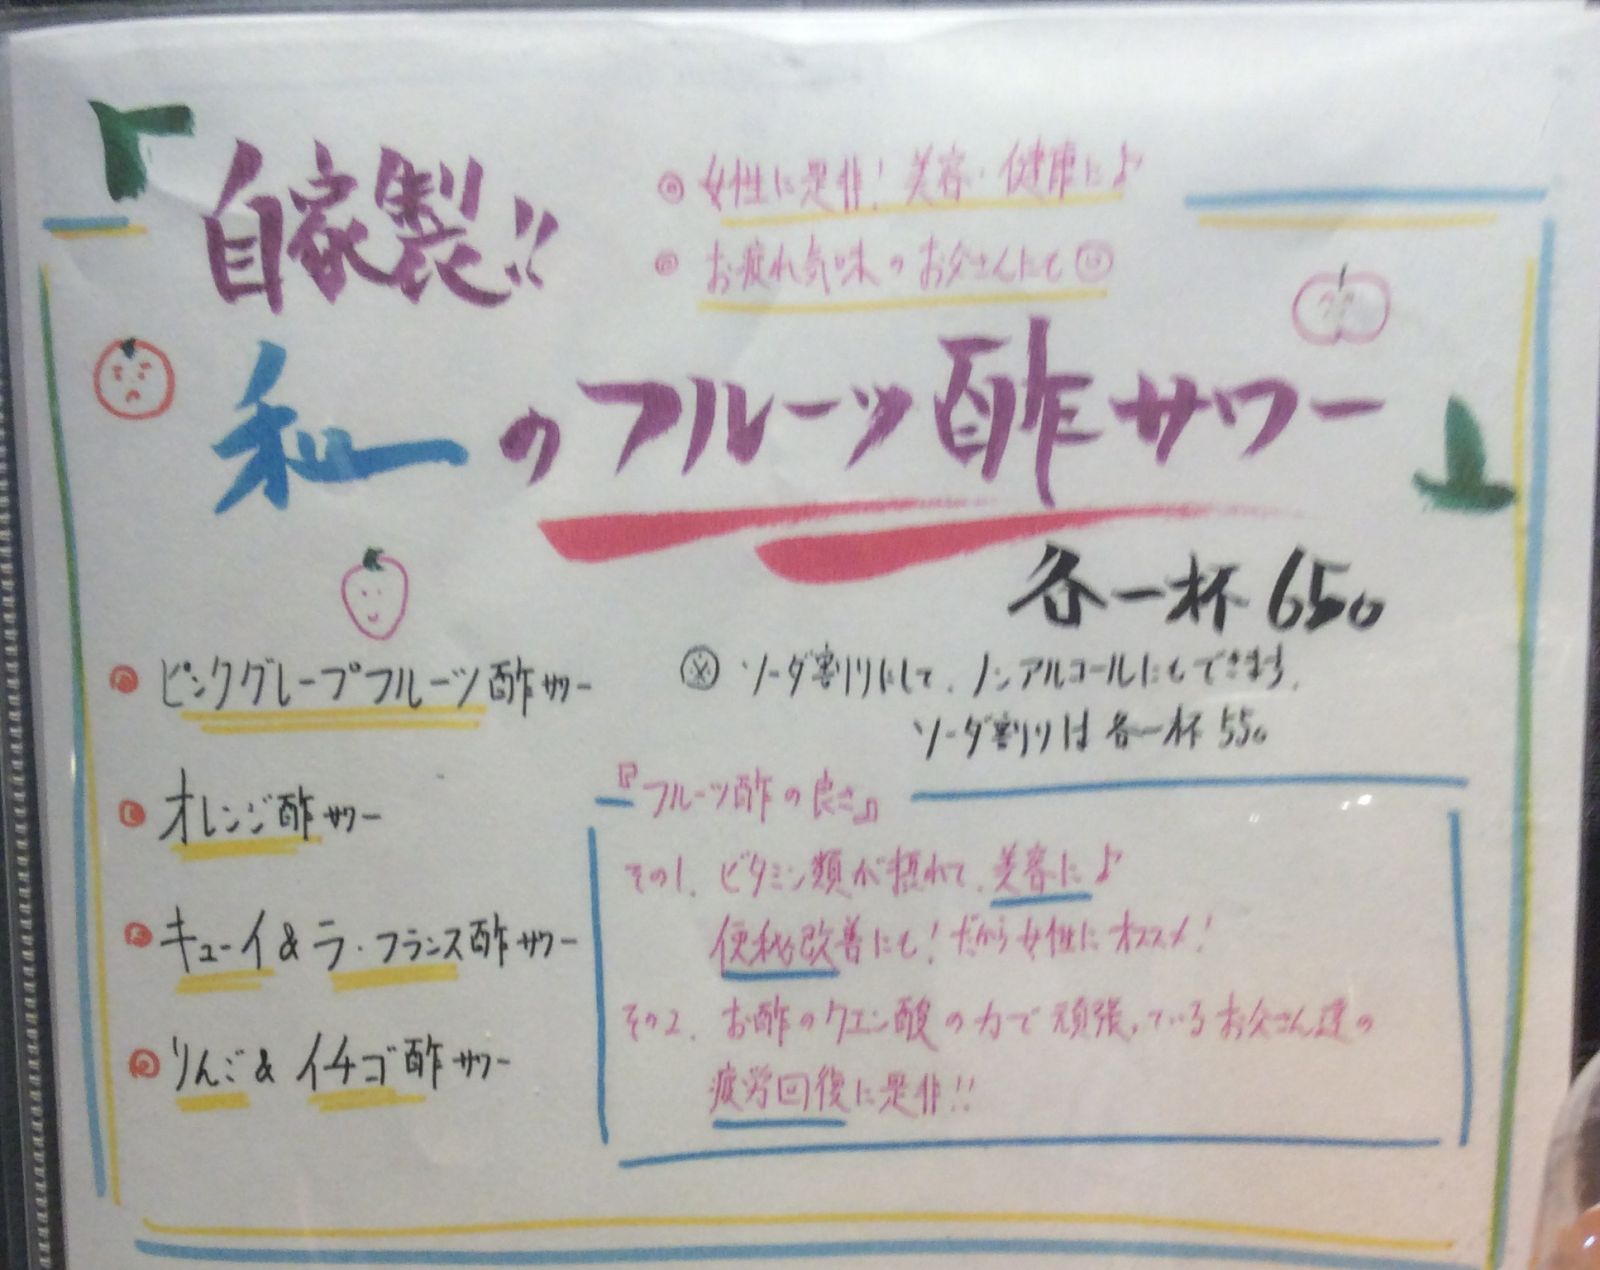 自家製!!
◎ 女性に是非! 美容・健康に♪
◎ お疲れ気味のお父さんにも
和のフルーツ酢サワー
各一杯 650
ピンクグレープフルーツ酢サワー
オレンジ酢サワー
キューイ&ラ・フランス酢サワー
りんご&イチゴ酢サワー
※ ソーダ割りにして、ノンアルコールにもできます。
ソーダ割りは各一杯 550
『フルーツ酢の良さ』
その1. ビタミン類が摂れて、美容に♪
便秘改善にも! だから女性にオススメ!
その2. お酢のクエン酸の力で頑張っているお父さん達の
疲労回復に是非!!